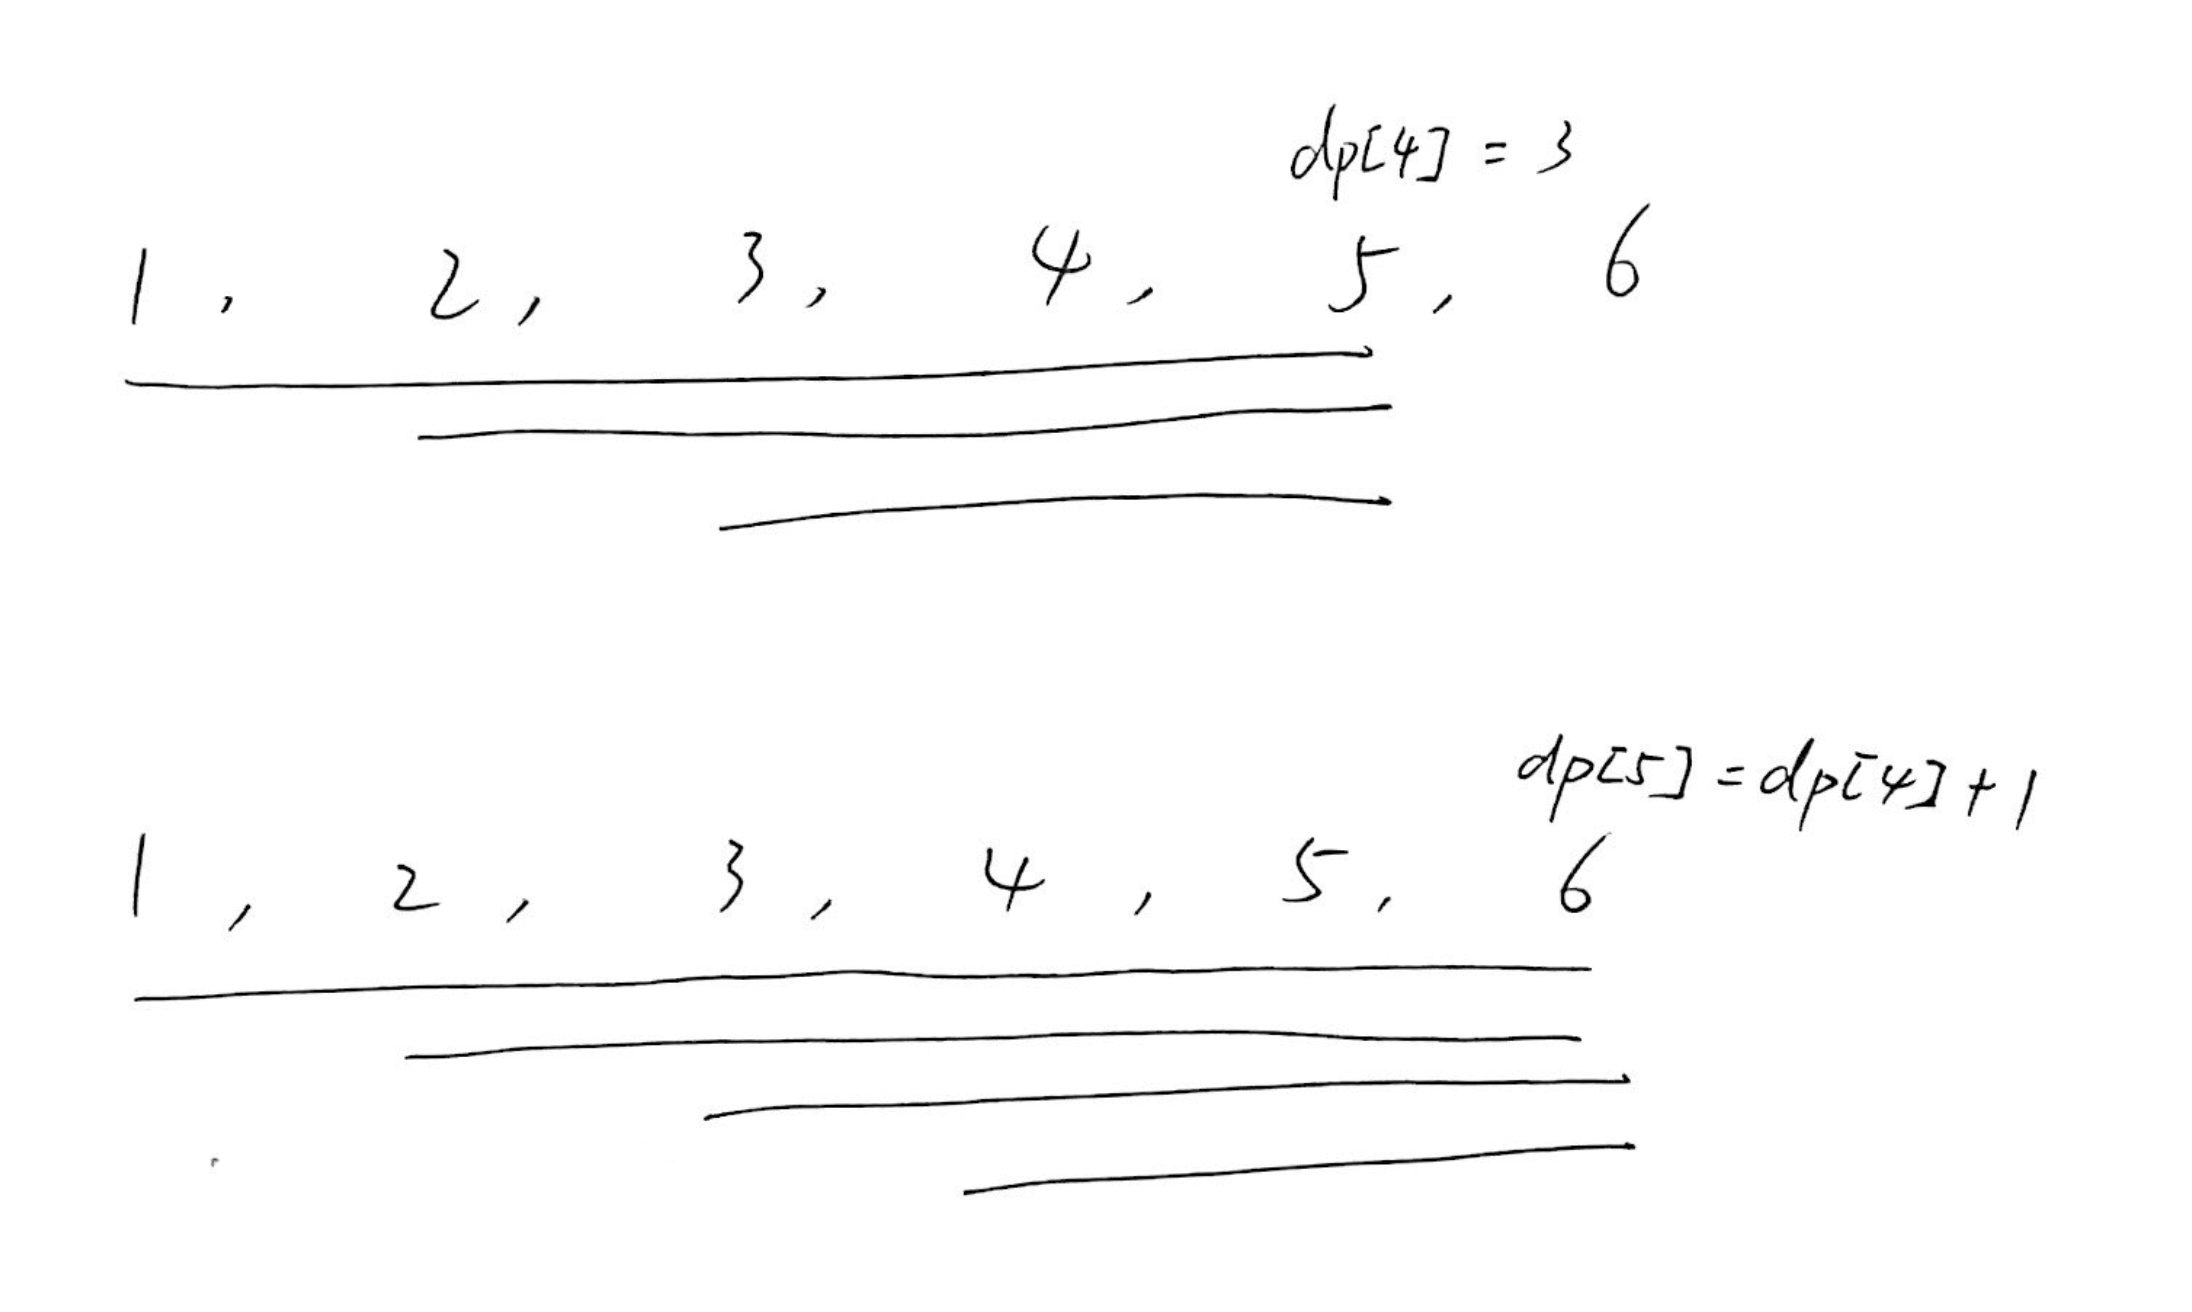 dp[4] = 3
1, 2, 3, 4, 5, 6
dp[5] = dp[4] + 1
1, 2, 3, 4, 5, 6